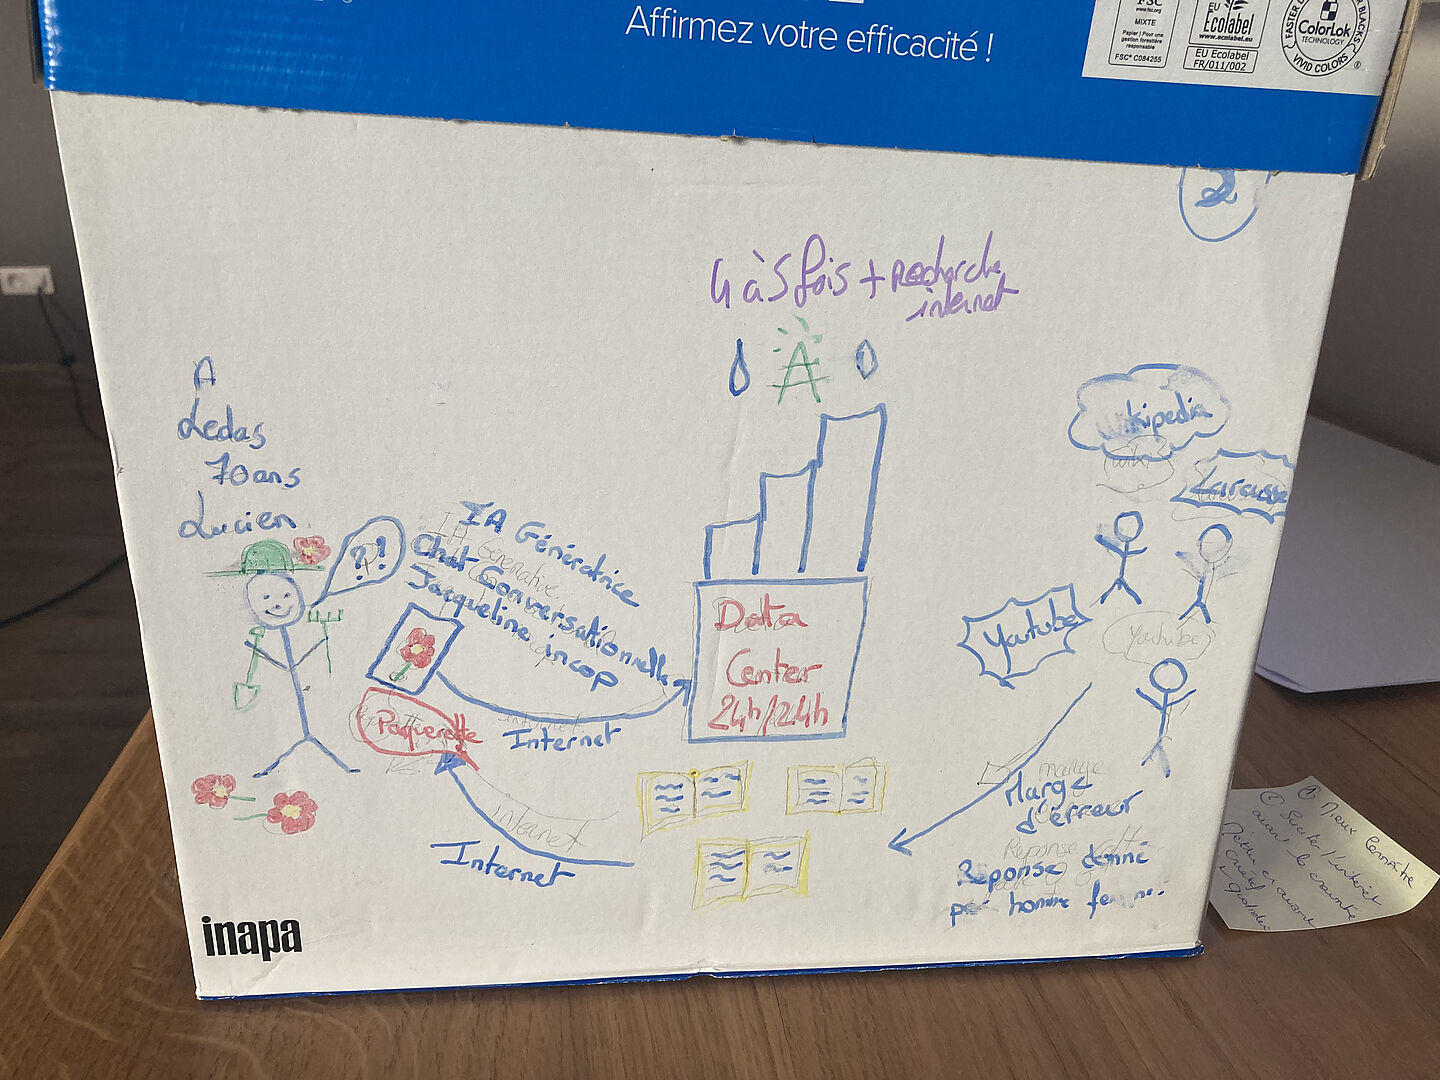 Affirmez votre efficacité !
FSC
www.fsc.org
MIXTE
Papier | Pour une
gestion forestière
responsable
FSC® C084255
EU
Ecolabel
www.ecolabel.eu
EU Ecolabel
FR/011/002
ColorLok
TECHNOLOGY
VIVID COLORS
4 à 5 fois + Recherche
internet
A
A
Ledas
70 ans
Lucien
? !
IA Générative
IA Génératrice
Chat Conversationnelle
Jacqueline incop
Data
Center
24h/24h
Paquerette
internet
Internet
internet
Internet
Wikipedia
wiki
Larousse
Youtube
Youtube
marge
Marge
d'erreur
Reponse
Reponse donné
par homme
① Mieux Connaître
② Susciter l'intérêt
avant la crainte
inapa